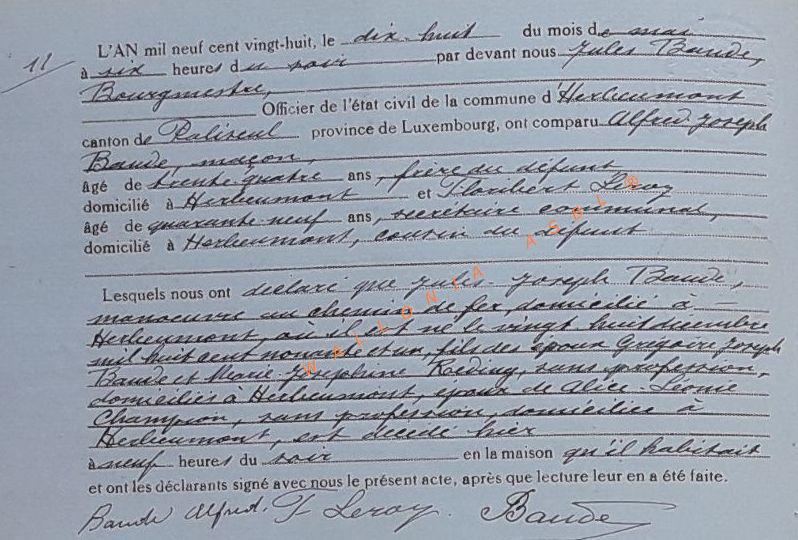 11
L'AN mil neuf cent vingt-huit, le dix-huit du mois de mai
à six heures du soir par devant nous Jules Baude,
Bourgmestre,
Officier de l'état civil de la commune d'Herbeumont
canton de Paliseul province de Luxembourg, ont comparu Alfred Joseph
Baude, maçon,
âgé de trente-quatre ans, frère du défunt
domicilié à Herbeumont et Floribert Leroy
âgé de quarante-neuf ans, secrétaire communal,
domicilié à Herbeumont, cousin du défunt
Lesquels nous ont déclaré que Jules Joseph Baude,
manoeuvre au chemin de fer, domicilié à —
Herbeumont, où il est né le vingt huit décembre
mil huit cent nonante et un, fils des époux Grégoire Joseph
Baude et Marie Joséphine Roeding, sans profession,
domiciliés à Herbeumont, époux de Alice Léonie
Champion, sans profession, domiciliée à
Herbeumont, est décédé hier
à neuf heures du soir en la maison qu'il habitait
et ont les déclarants signé avec nous le présent acte, après que lecture leur en a été faite.
Baude Alfred. F Leroy. Baude
WALLONIA ASBL ©